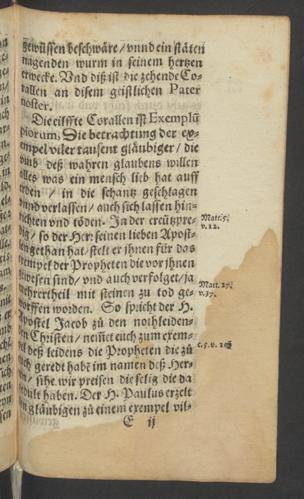 gewüssen beschwäre / vnnd ein stäten
nagenden wurm in seinem hertzen
erwecke. Vnd diß ist die zehende Co-
rallen an disem geistlichen Pater
noster.
Die eilffte Corallen ist Exemplũ
piorum, Die betrachtung der ex-
empel viler tausent gläubiger / die
vmb deß wahren glaubens willen
alles was ein mensch lieb hat auff
erden / in die schantz geschlagen
vnnd verlassen / auch sich lassen hin-
richten vnd töden. In der creützpre-
dig / so der Herr seinen lieben Apost-
len gethan hat / stelt er jhnen für das
exempel der Propheten die vor jhnen
gewesen sind / vnd auch verfolget / ja
mehrertheil mit steinen zu tod ge-
worffen worden. So spricht der H.
Apostel Jacob zů den nothleiden-
den Christen / nem̃et euch zum exem-
pel deß leidens die Propheten die zů
euch geredt habẽ im namen deß Her-
ren / sihe wir preisen die selig die da
gedult haben. Der H. Paulus erzelt
den gläubigen zů einem exempel vil-
E ij
Matt. 5.
v. 12.
v. 37.
c. 5. v. 10